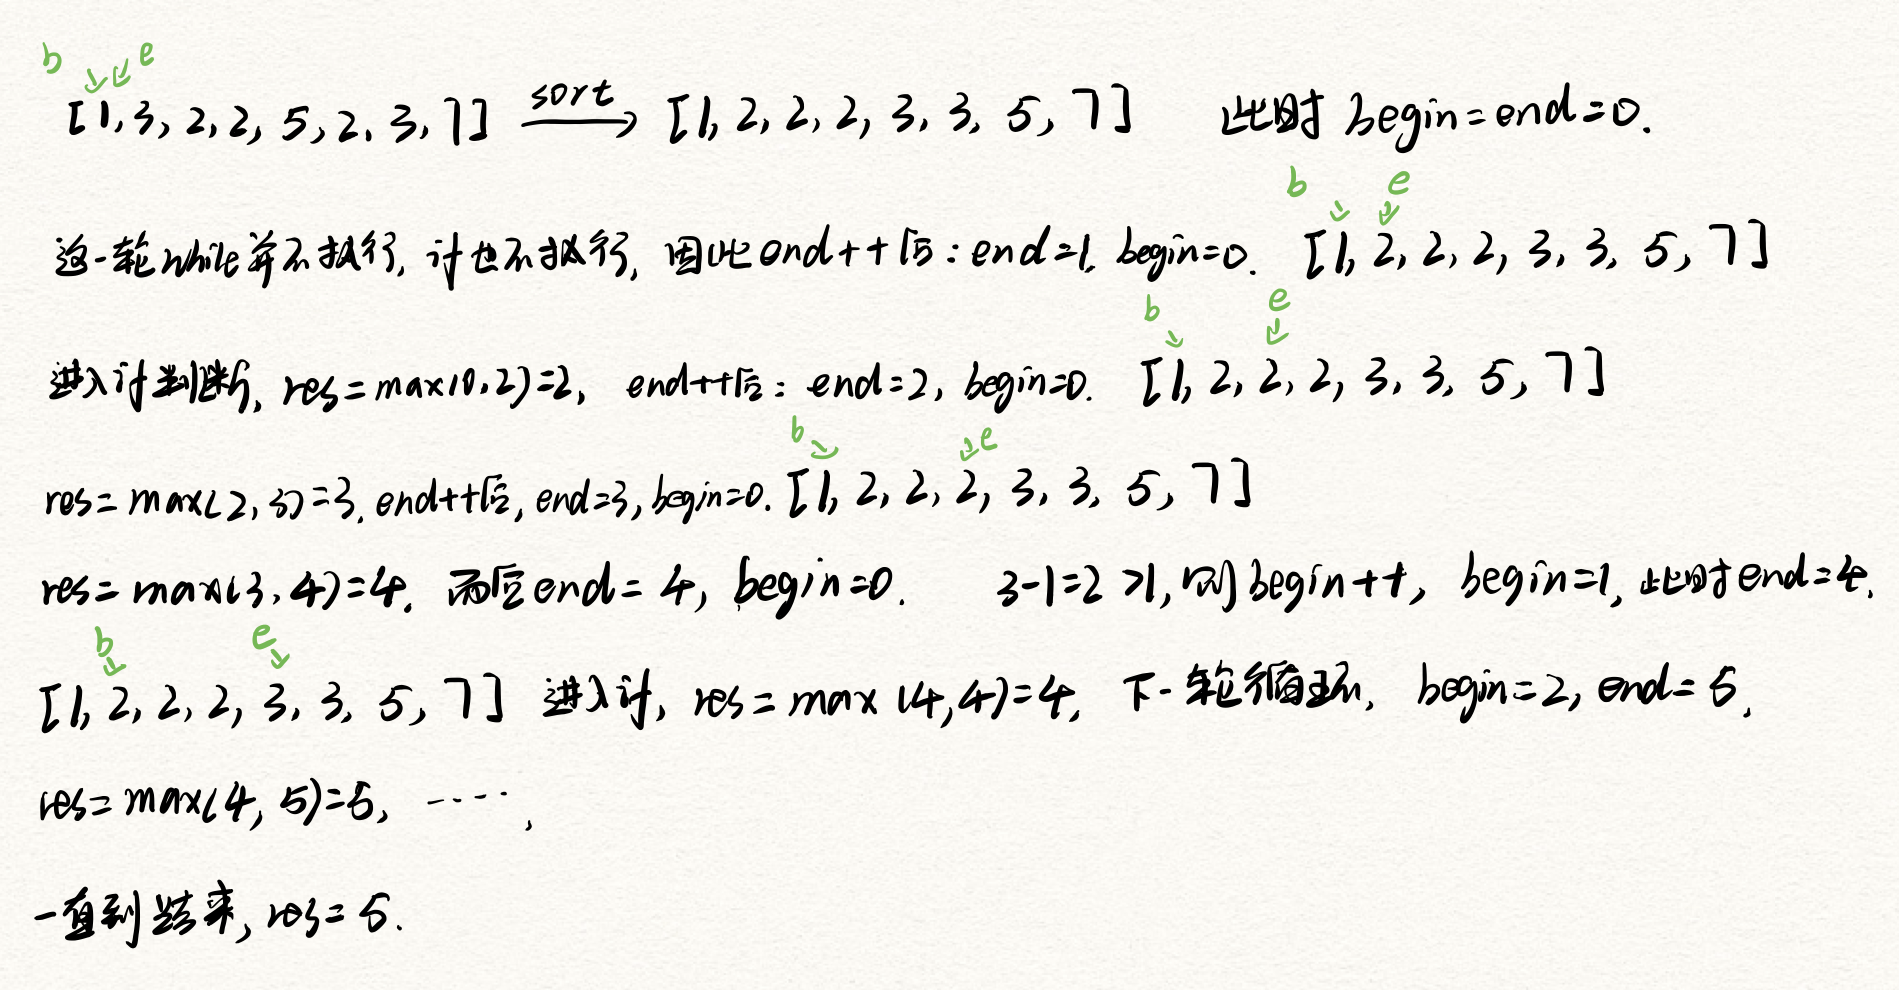 b e
[1,3,2,2,5,2,3,7] sort [1,2,2,2,3,3,5,7] 此时 begin=end=0.
b e
这一轮while并不执行, if也不执行, 因此end++后: end=1, begin=0. [1,2,2,2,3,3,5,7]
b e
进入if判断, res=max(0,2)=2, end++后: end=2, begin=0. [1,2,2,2,3,3,5,7]
b e
res=max(2,3)=3, end++后, end=3, begin=0. [1,2,2,2,3,3,5,7]
res=max(3,4)=4. 而后end=4, begin=0. 3-1=2>1, 则begin++, begin=1, 此时end=4.
b e
[1,2,2,2,3,3,5,7] 进入if, res=max(4,4)=4, 下一轮循环, begin=2, end=5,
res=max(4,5)=5, ·····,
一直到结束, res=5.